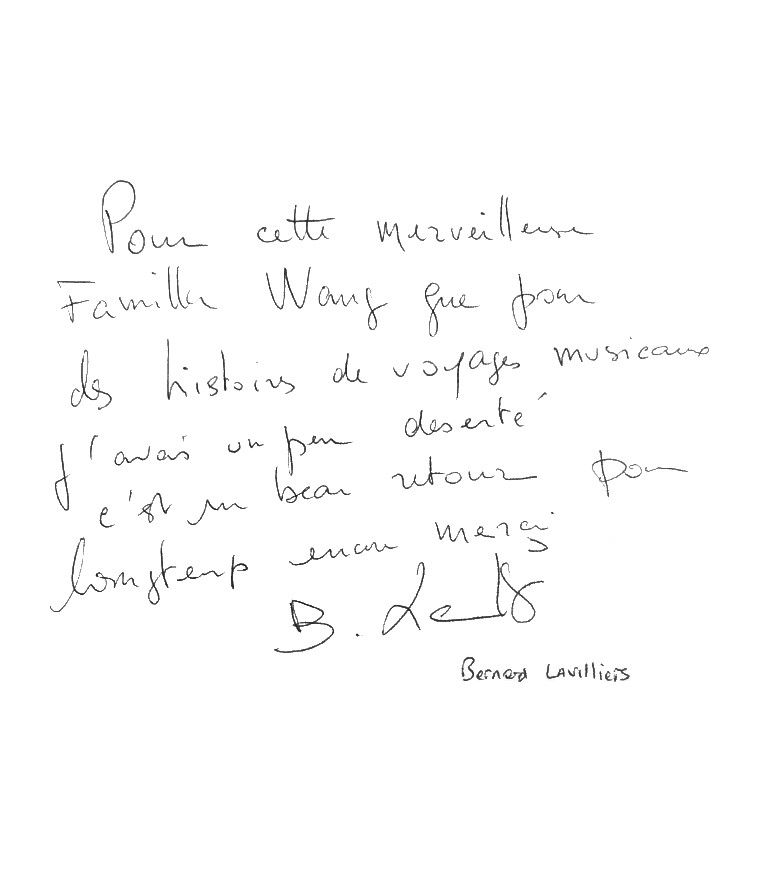 Pour cette merveilleuse
Famille Wang que pour
des histoires de voyages musicaux
j'avais un peu deserté
c'est un beau retour pour
longtemp encore merci
B. Lavilliers
Bernard LAVilliers